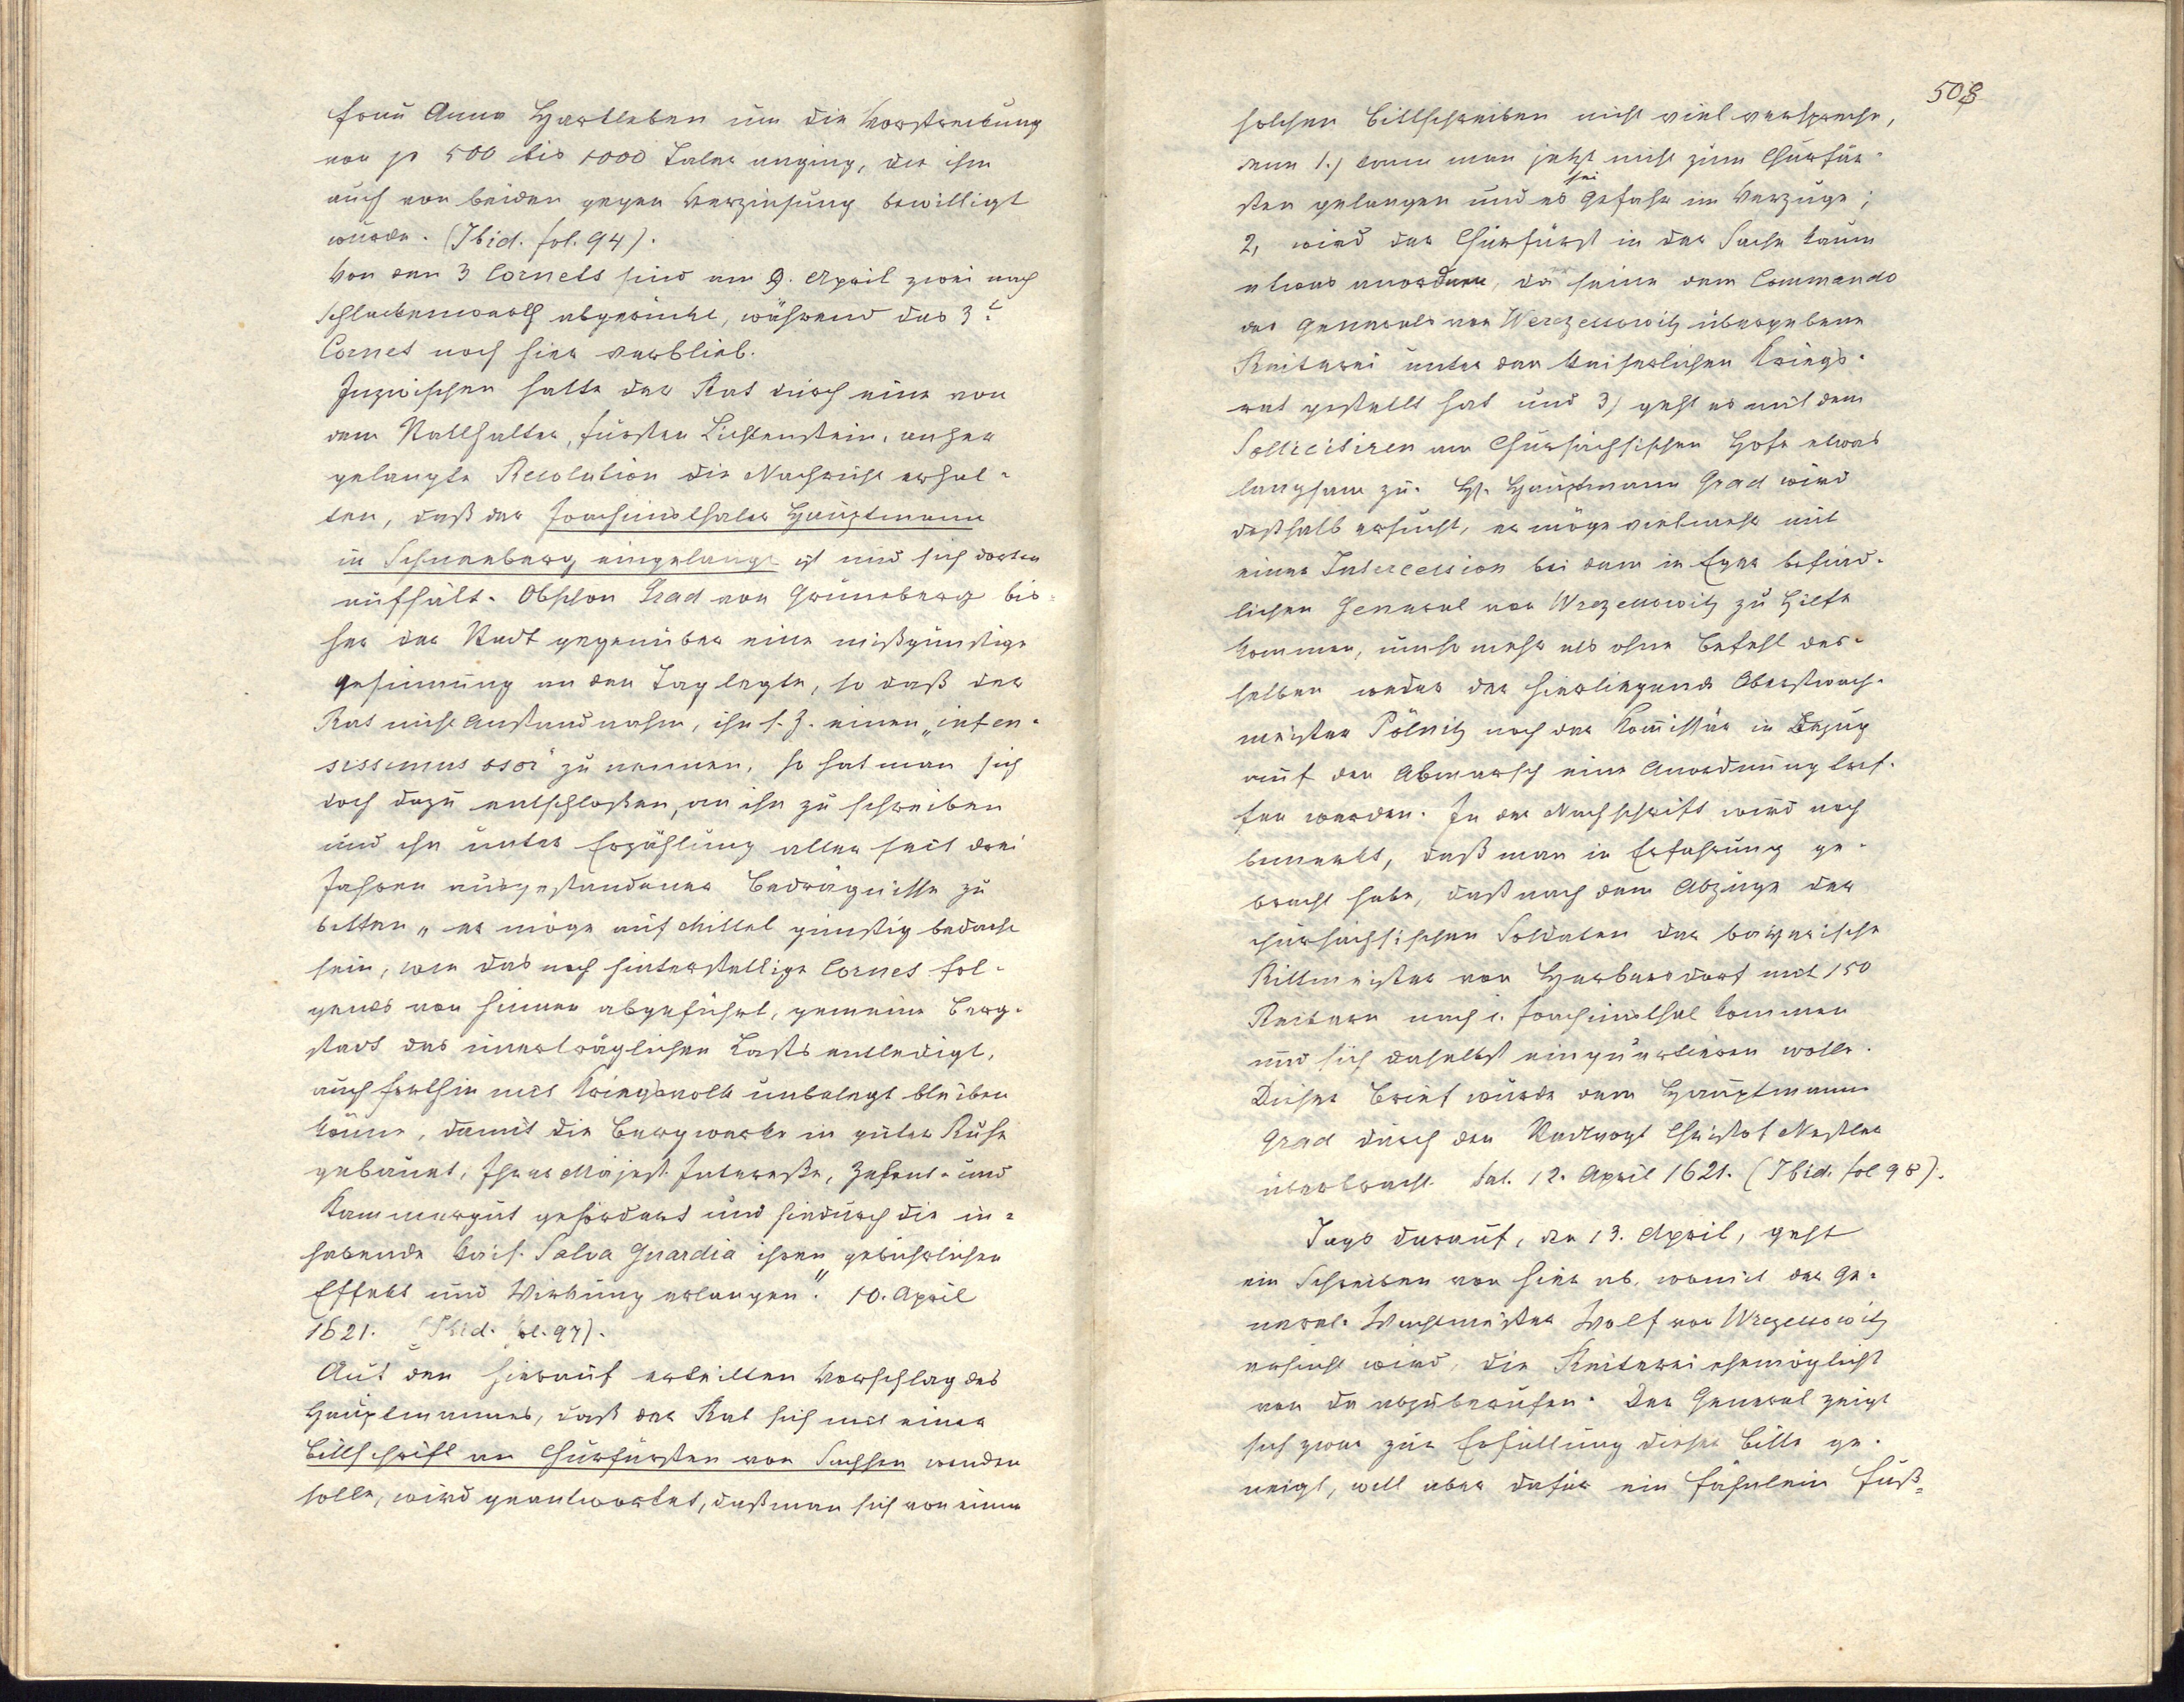 Frau Anna Hartleben um die Vorstreckung
von je 500 bis 1000 Taler anging, die ihm
auch von beiden gegen Verzinsung bewilligt
wurde. (Ibid. fol. 94).
Von den 3 Cornets sind am 9. April zwei nach
Schlackenwerth abgerückt, während das 3t.
Cornet noch hier verblieb.
Inzwischen hatte der Rat durch eine von
dem Statthalter, Fürsten Lichtenstein, anher
gelangte Resolution die Nachricht erhal-
ten, daß der Joachimsthaler Hauptmann
in Schneeberg eingelangt ist und sich dorten
aufhält. Obschon Grad von Grüneberg bis-
her der Stadt gegenüber eine mißgünstige
Gesinnung an den Tag legte, so daß der
Rat nicht Anstand nahm, ihn s. Z. einen „infen-
sissimus osor" zu nennen, so hat man sich
doch dazu entschloßen, an ihn zu schreiben
und ihn unter Erzählung aller seit drei
Jahren ausgestandener Bedrägnisse zu
bitten „er möge auf Mittel günstig bedacht
sein, wie das noch hinterstellige Cornet fol-
gends von hinnen abgeführt, gemeine Berg-
stadt des unerträglichen Lasts entledigt,
auch forthin mit Kriegsvolk unbelegt bleiben
könne, damit die Bergwerke in guter Ruhe
gebauet, Ihrer Majest. Intereße, Zehent- und
Kammergut gefördert und hiedurch die in-
habende kais. Salva Guardia ihren gebührlichen
Effekt und Wirkung erlangen." 10. April
1621. (Ibid. fol. 97).
Auf den hierauf erteilten Vorschlag des
Hauptmannes, daß der Rat sich mit einer
Bittschrift an Churfürsten von Sachsen wenden
solle, wird geantwortet, daß man sich von einem
508
solchen Bittschreiben nicht viel verspreche,
denn 1.) kann man jetzt nicht zum Churfür-
sten gelangen und es sei Gefahr im Verzuge;
2, wird der Churfürst in der Sache kaum
etwas anordnen, da seine dem Commando
des Generals von Werczessowitz übergebene
Reiterei unter den kaiserlichen Kriegs-
rat gestellt hat und 3) geht es mit dem
Sollicitiren am Chursächsischen Hofe etwas
langsam zu. H. Hauptmann Grad wird
deßhalb ersucht, er möge vielmehr mit
einer Intercession bei dem in Eger befind-
lichen General von Wrezessowitz zu Hilfe
kommen, umso mehr als ohne Befehl des-
selben weder der hierliegende Oberstwach-
meister Pölnitz noch der Kom̅issär in Bezug
auf den Abmarsch eine Anordnung tref-
fen werden. In der Nachschrift wird noch
bemerkt, daß man in Erfahrung ge-
bracht habe, daß nach dem Abzuge der
chursächsischen Soldaten der bayerische
Rittmeister von Herbersdorf mit 150
Reitern nach i. Joachimsthal kommen
und sich daselbst einquartieren wolle.
Dieser Brief wurde dem Hauptmann
Grad durch den Stadtvogt Christof Nestler
überbracht. Dat. 12. April 1621. (Ibid. fol 98).
Tags darauf, den 13. April, geht
ein Schreiben von hier ab, womit der Ge-
neral-Wachtmeister Wolf von Wrezessowitz
ersucht wird, die Reiterei ehemöglichst
von da abzuberufen. Der General zeigt
sich zwar zur Erfüllung dieser Bitte ge-
neigt, will aber dafür ein Fähnlein Fuß-